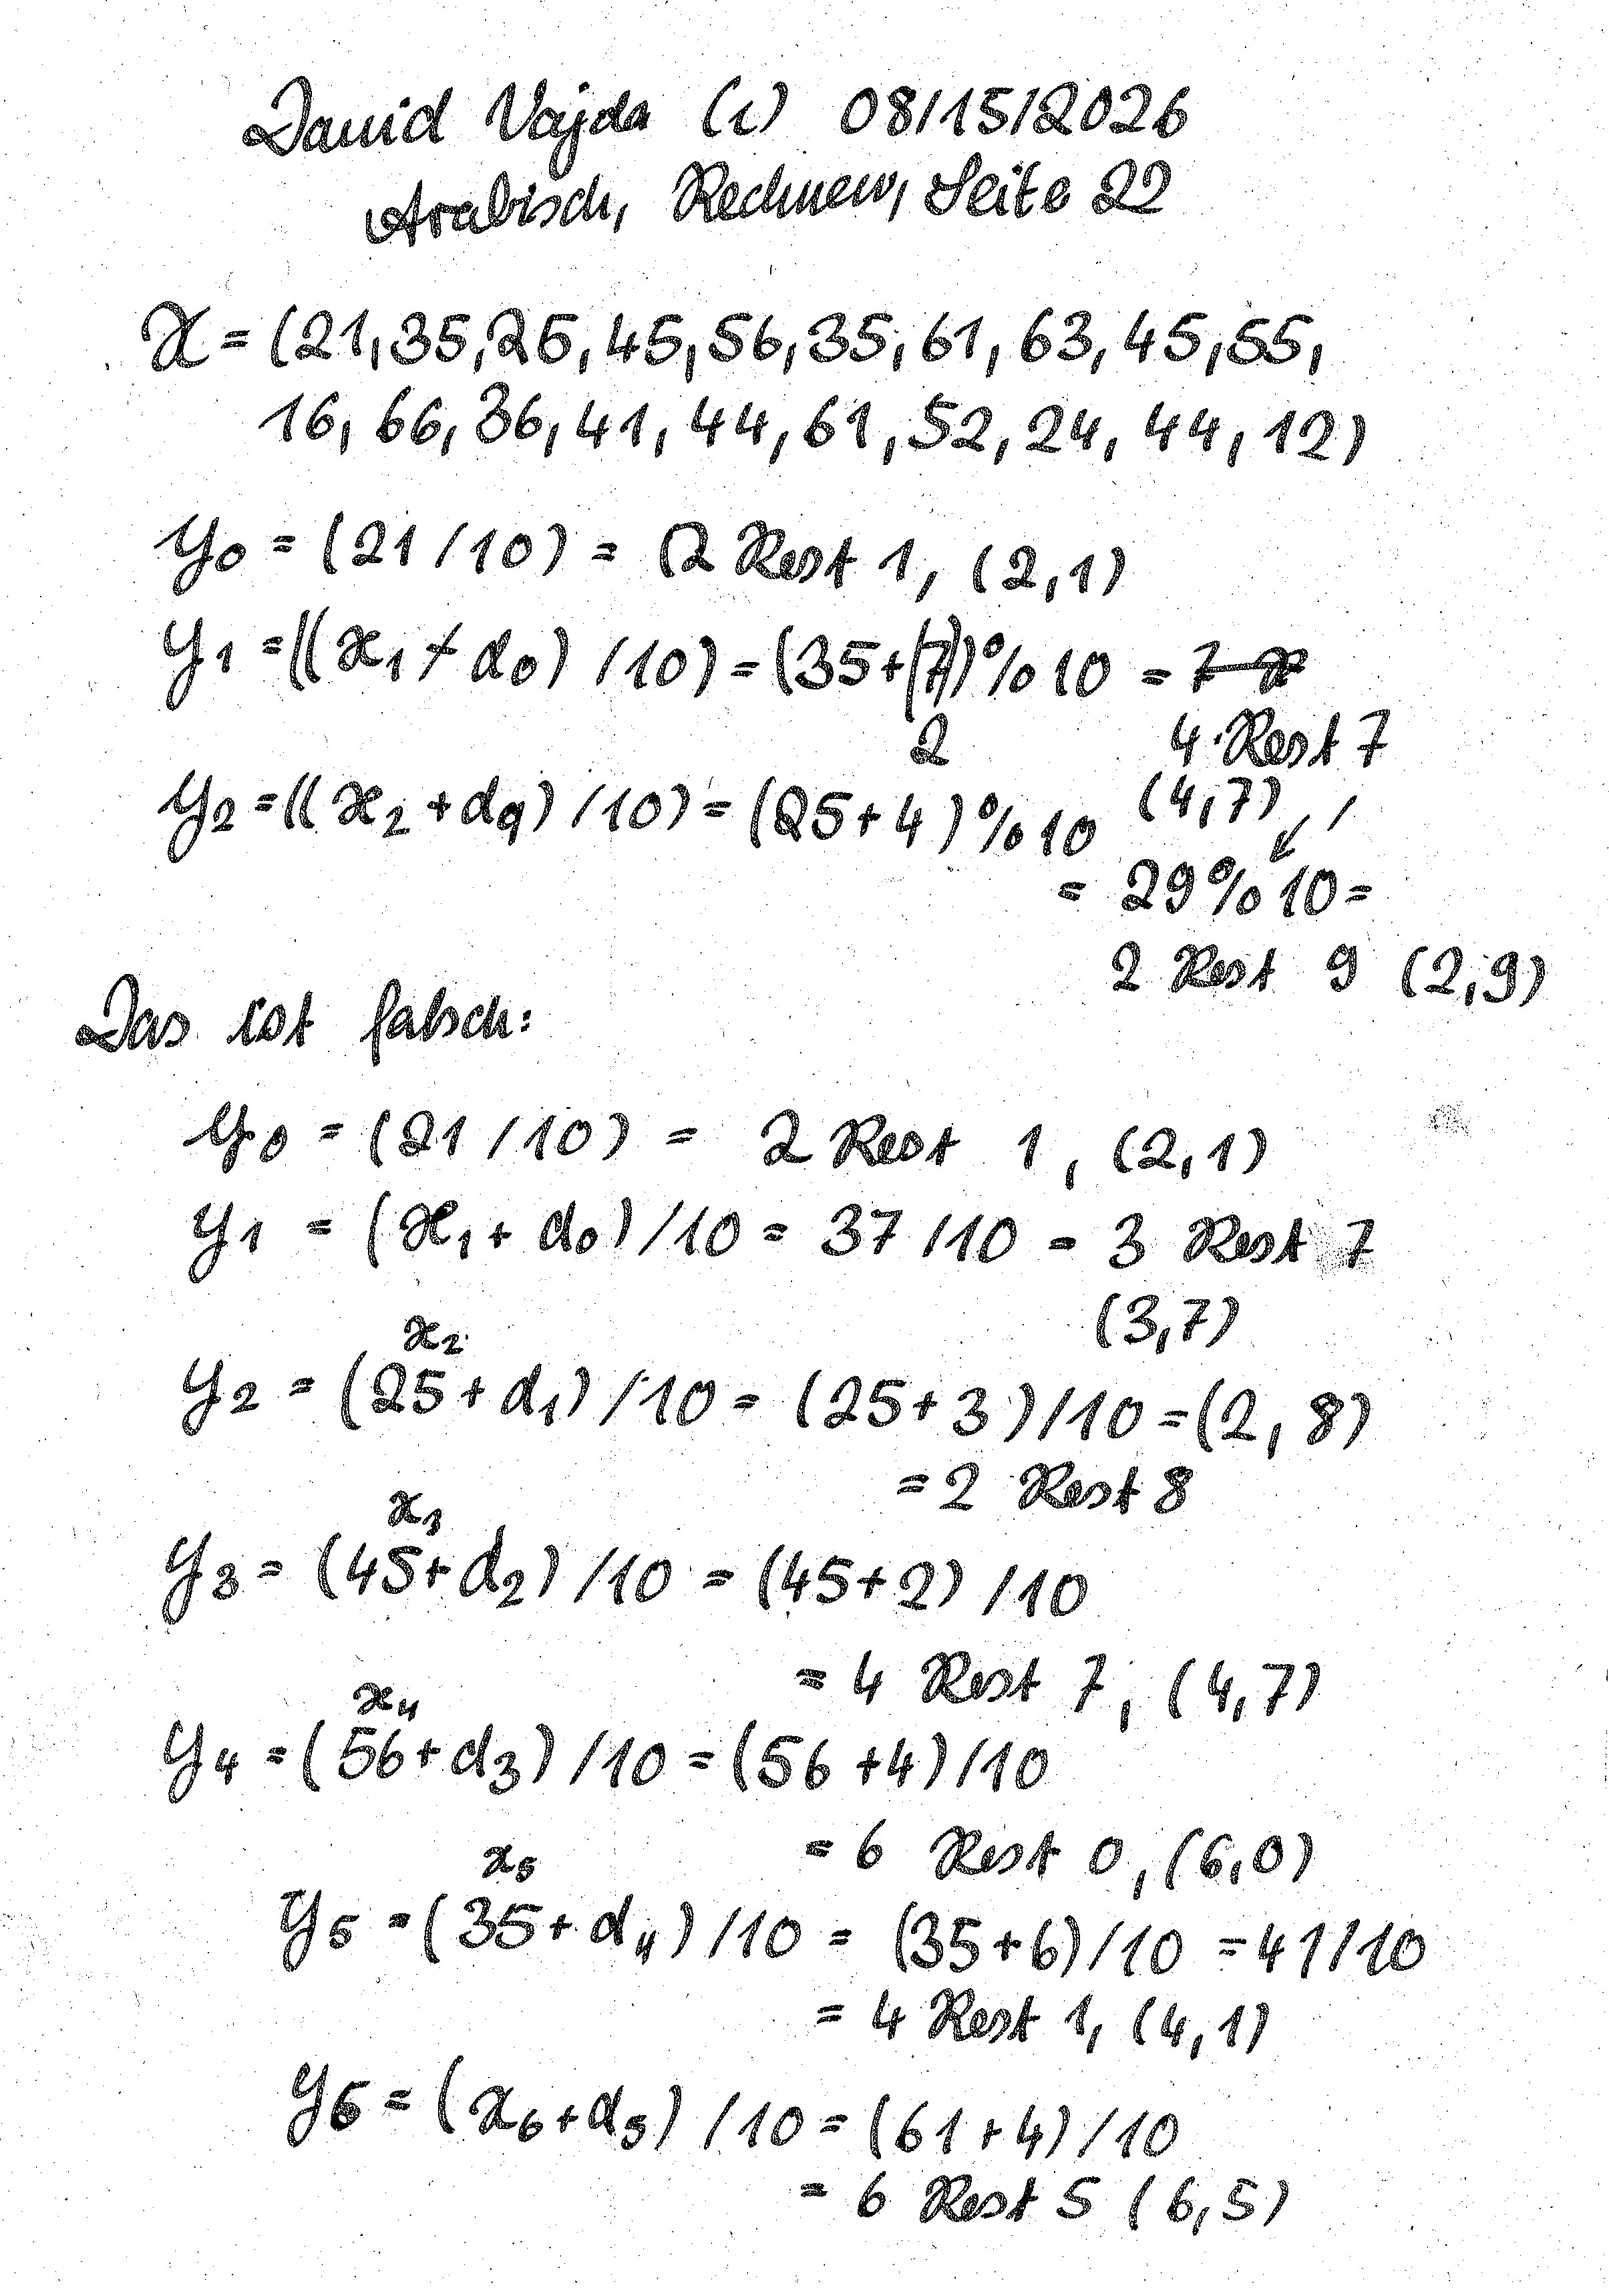 David Vajda (1) 08/15/2026
Arabisch, Rechnen, Seite 22
x = (21, 35, 25, 45, 56, 35, 61, 63, 45, 55,
16, 66, 36, 41, 44, 61, 52, 24, 44, 12)
y0 = (21 / 10) = (2 Rest 1, (2,1)
y1 = ((x1 + d0) / 10) = (35+(7))% 10 =
2 4 Rest 7
(4,7)
y2 = ((x2 + d9) / 10) = (25+4)%10
= 29%10 =
2 Rest 9 (2,9)
Das ist falsch:
y0 = (21 / 10) = 2 Rest 1, (2,1)
y1 = (x1 + d0) / 10 = 37 / 10 = 3 Rest 7
(3,7)
x2
y2 = (25 + d1) / 10 = (25+3) / 10 = (2, 8)
= 2 Rest 8
x3
y3 = (45+d2) / 10 = (45+2) / 10
= 4 Rest 7, (4,7)
x4
y4 = (56+d3) / 10 = (56+4) / 10
= 6 Rest 0, (6,0)
x5
y5 = (35+d4) / 10 = (35+6) / 10 = 41/10
= 4 Rest 1, (4,1)
y6 = (x6+d5) / 10 = (61+4) / 10
= 6 Rest 5 (6,5)